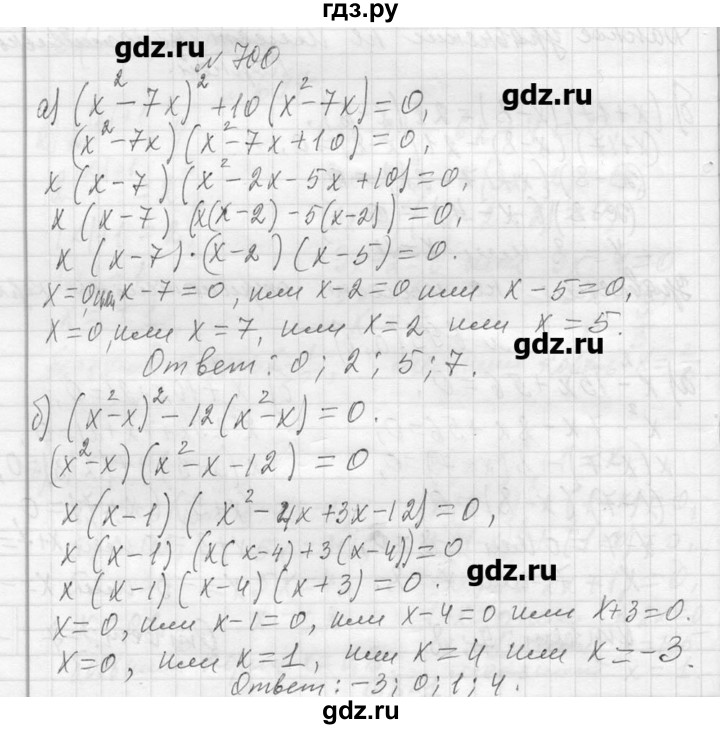 гдз.ру
gdz.ru
№ 700
а) (x²-7x)²+10(x²-7x)=0,
gdz.ru
(x²-7x)(x²-7x+10)=0,
x(x-7)(x²-2x-5x+10)=0,
x(x-7)(x(x-2)-5(x-2))=0,
x(x-7)·(x-2)(x-5)=0.
x=0, или x-7=0, или x-2=0 или x-5=0,
x=0, или x=7, или x=2 или x=5.
gdz.ru
Ответ: 0; 2; 5; 7.
б) (x²-x)²-12(x²-x)=0.
(x²-x)(x²-x-12)=0
x(x-1)(x²-4x+3x-12)=0,
x(x-1)(x(x-4)+3(x-4))=0
gdz.ru
x(x-1)(x-4)(x+3)=0.
x=0, или x-1=0, или x-4=0 или x+3=0.
x=0, или x=1, или x=4 или x=-3.
Ответ: -3; 0; 1; 4.
gdz.ru